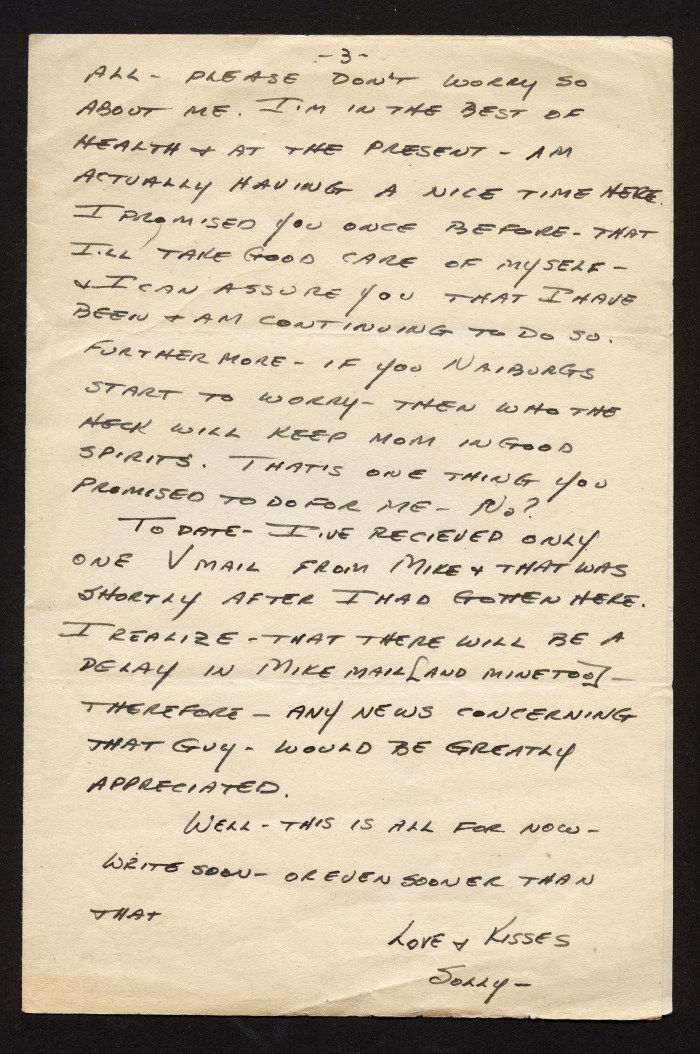 -3-
ALL- PLEASE DON'T WORRY SO
ABOUT ME. I'M IN THE BEST OF
HEALTH & AT THE PRESENT - AM
ACTUALLY HAVING A NICE TIME HERE.
I PROMISED YOU ONCE BEFORE - THAT
I'LL TAKE GOOD CARE OF MYSELF -
& I CAN ASSURE YOU THAT I HAVE
BEEN & AM CONTINUING TO DO SO.
FURTHERMORE - IF YOU NAIBURGS
START TO WORRY - THEN WHO THE
HECK WILL KEEP MOM IN GOOD
SPIRITS. THAT'S ONE THING YOU
PROMISED TO DO FOR ME - NO?
TO DATE - I'VE RECIEVED ONLY
ONE V MAIL FROM MIKE & THAT WAS
SHORTLY AFTER I HAD GOTTEN HERE.
I REALIZE - THAT THERE WILL BE A
DELAY IN MIKE MAIL [AND MINE TOO] -
THEREFORE - ANY NEWS CONCERNING
THAT GUY - WOULD BE GREATLY
APPRECIATED.
WELL - THIS IS ALL FOR NOW -
WRITE SOON - OR EVEN SOONER THAN
THAT
LOVE & KISSES
SOLLY -